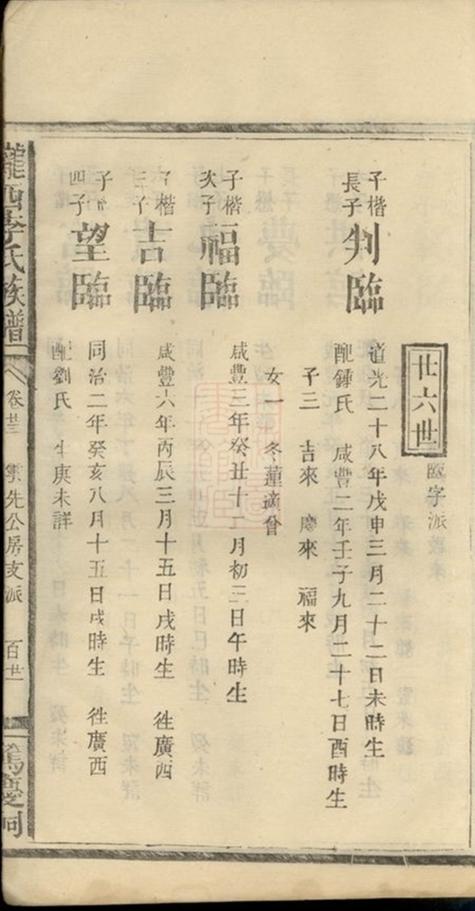 廿六世
臨字派
子楷長子
判臨
道光二十八年戊申三月二十二日未時生
配鍾氏 咸豐二年壬子九月二十七日酉時生
子三 吉來 慶來 福來
女一 冬蓮適曾
子楷次子
福臨
咸豐三年癸丑十二月初三日午時生
子楷三子
吉臨
咸豐六年丙辰三月十五日戌時生 徃廣西
子楷四子
望臨
同治二年癸亥八月十五日戌時生 徃廣西
配劉氏 生庚未詳
隴西李氏族譜
雲先公房支派
篤慶